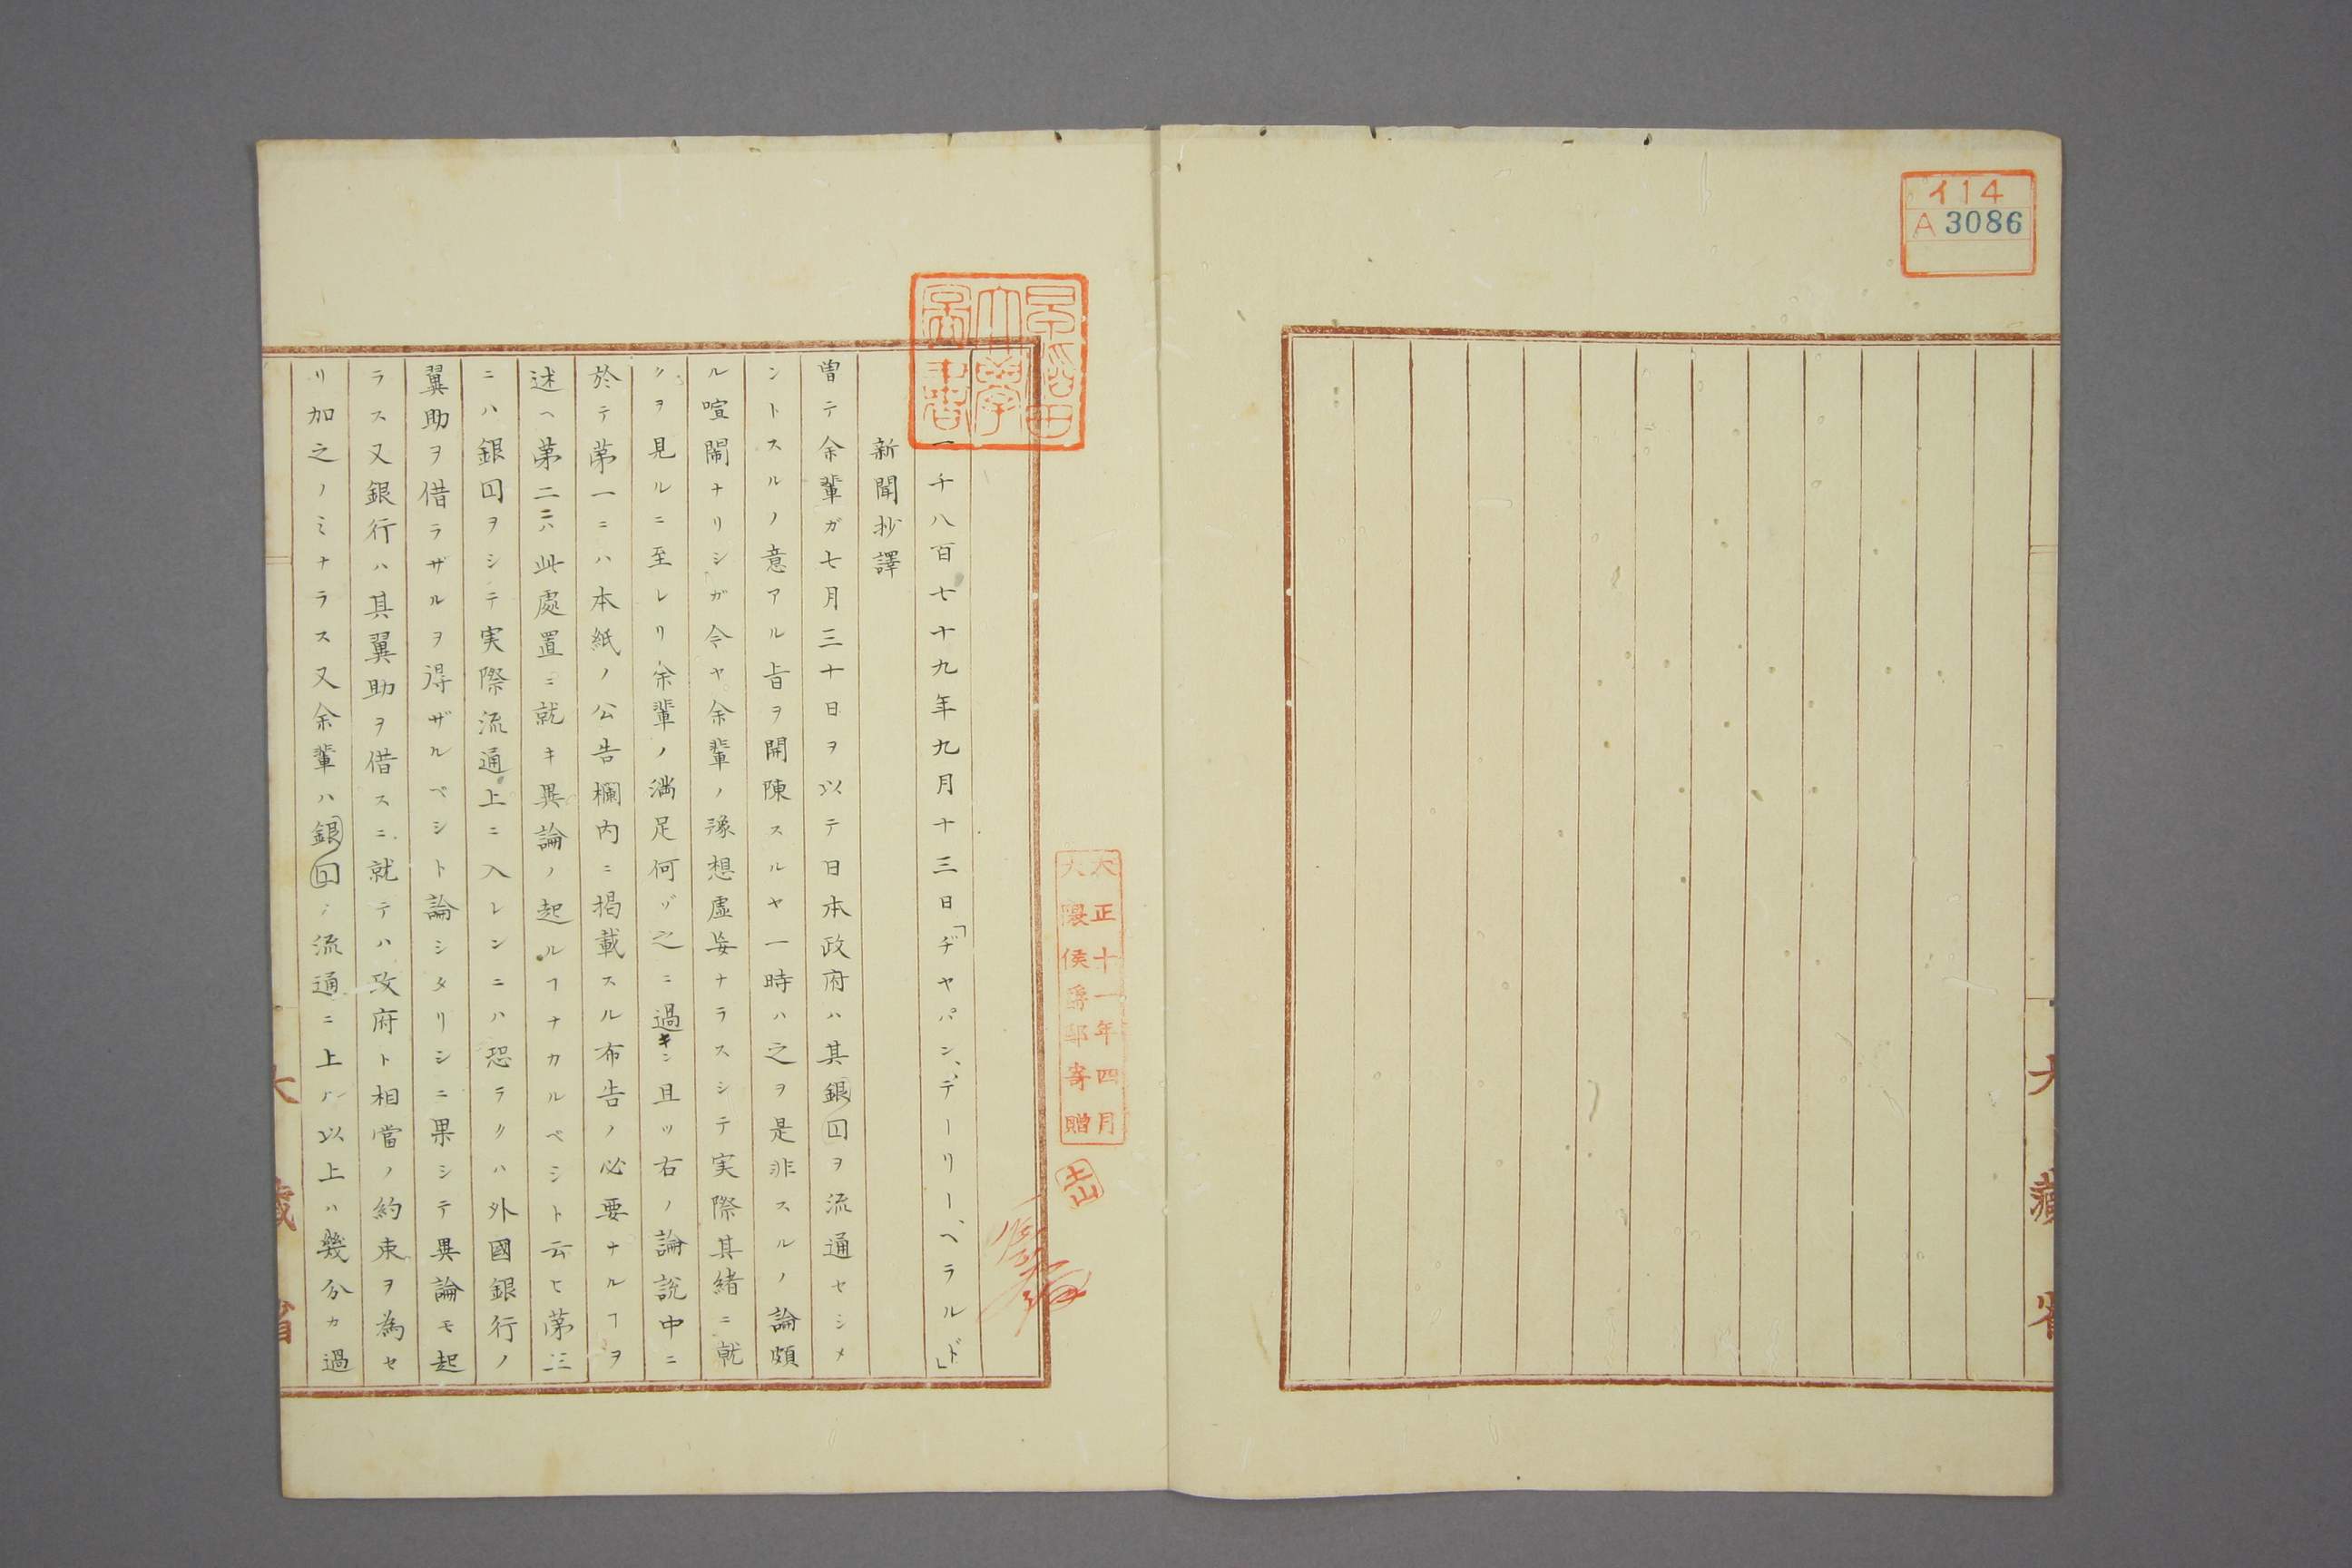 イ14
A 3086
大藏省
早稲田大學圖書
大正十一年四月
大隈侯爵邸寄贈
一千八百七十九年九月十三日「ヂヤパン、デーリー、ヘラルド」
新聞抄譯
曽テ余輩ガ七月三十日ヲ以テ日本政府ハ其銀囙ヲ流通セシメ
ントスルノ意アル旨ヲ開陳スルヤ一時ハ之ヲ是非スルノ論頗
ル喧鬧ナリシガ今ヤ余輩ノ豫想虚妄ナラスシテ実際其緒ニ就
クヲ見ルニ至レリ余輩ノ満足何ゾ之ニ過キン且ツ右ノ論説中ニ
於テ苐一ニハ本紙ノ公告欄内ニ掲載スル布告ノ必要ナルヿヲ
述ヘ苐二ニハ此處置ニ就キ異論ノ起ルヿナカルベシト云ヒ苐三
ニハ銀囙ヲシテ実際流通上ニ入レンニハ恐ラクハ外國銀行ノ
翼助ヲ借ラザルヲ得ザルベシト論シタリシニ果シテ異論モ起
ラス又銀行ハ其翼助ヲ借スニ就テハ政府ト相當ノ約束ヲ為セ
リ加之ノミナラス又余輩ハ銀囙ノ流通ニ上ル以上ハ幾分カ過
大藏省